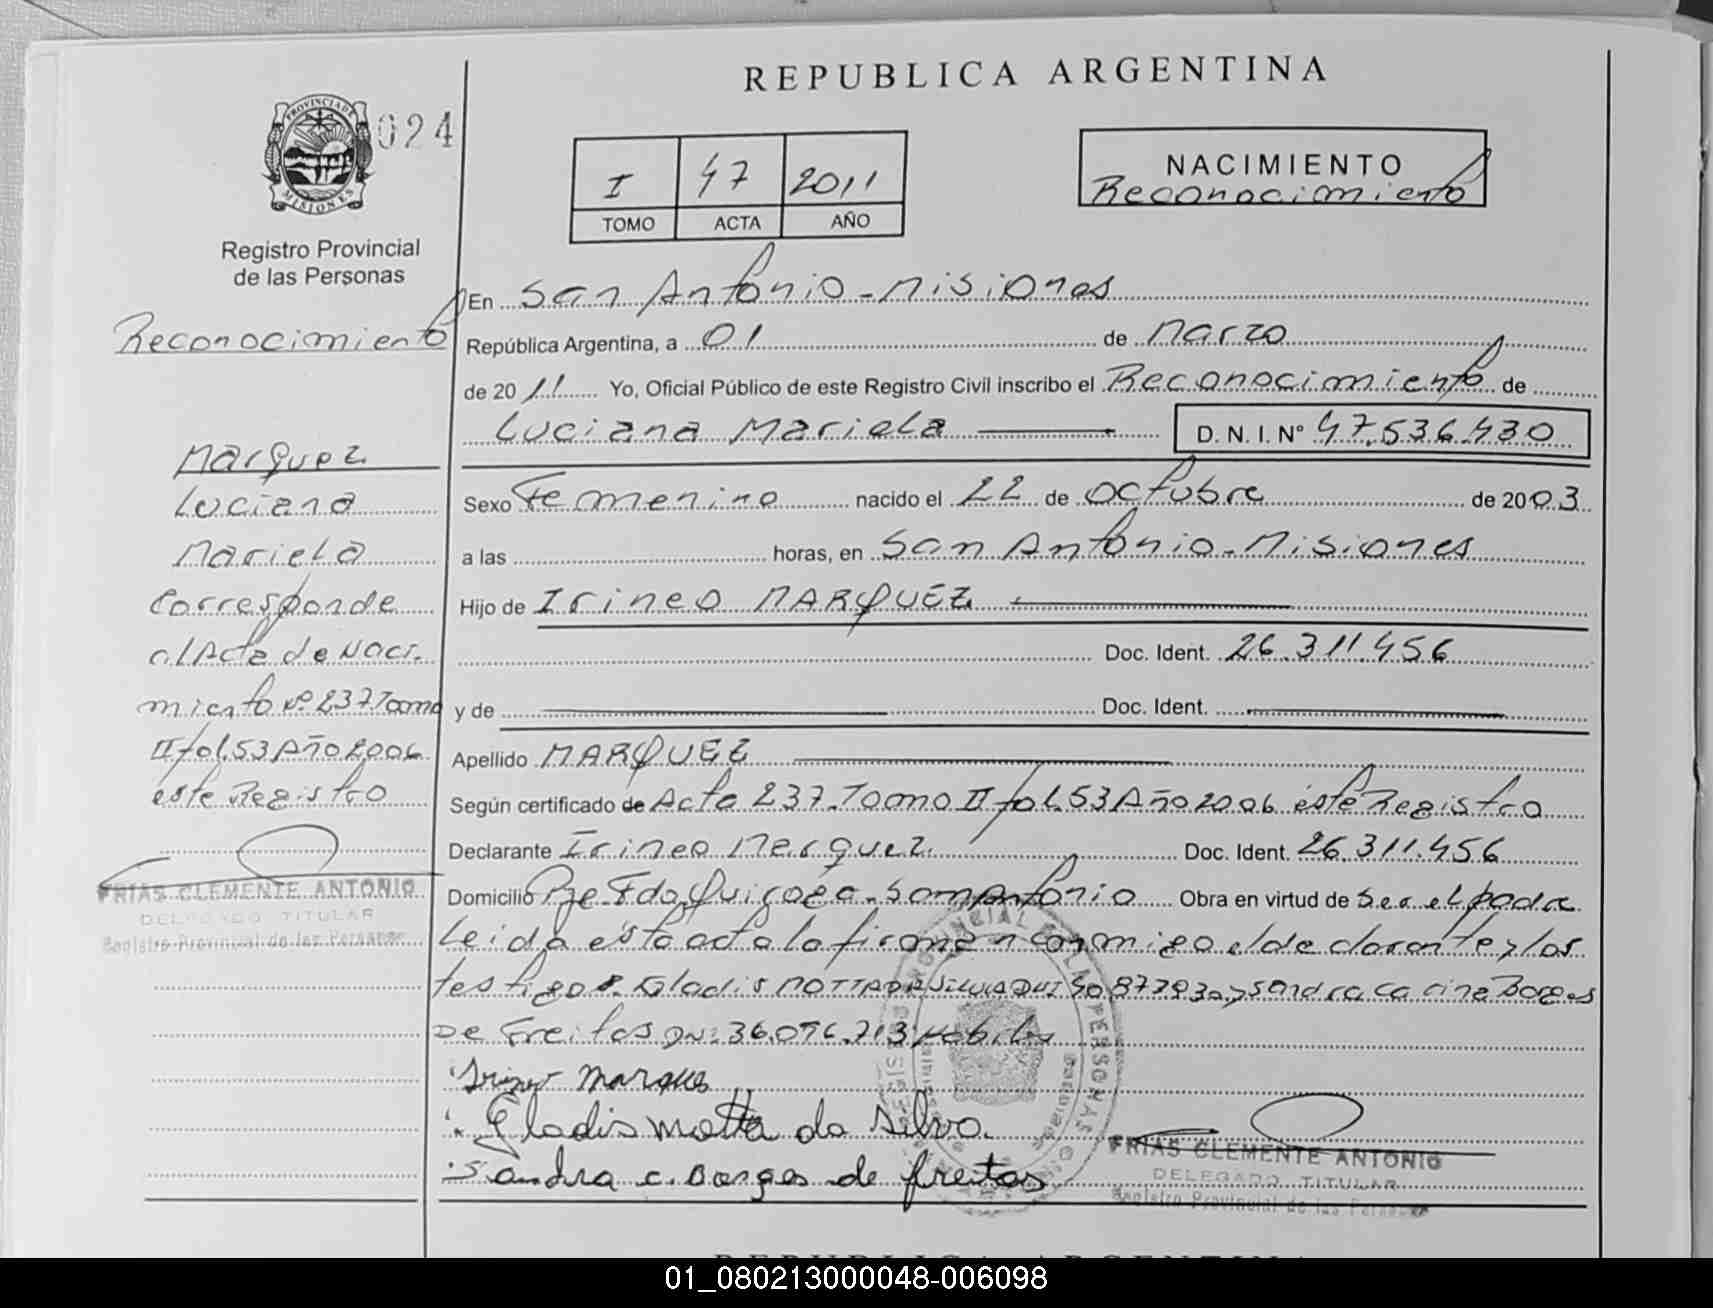 REPUBLICA ARGENTINA
PROVINCIA DE
MISIONES
024
I 47 2011
TOMO ACTA AÑO
NACIMIENTO
Reconocimiento
Registro Provincial
de las Personas
Reconocimiento
Marquez
Luciana
Mariela
Corresponde
al Acta de Naci.
miento Nº 237 Toomo
II fol. 53 Año 2006
este Registro
FRIAS CLEMENTE ANTONIO
DELEGADO TITULAR
Registro Provincial de las Personas
En San Antonio - Misiones
República Argentina, a 01 de Marzo
de 20 11 Yo, Oficial Público de este Registro Civil inscribo el Reconocimiento de
Luciana Mariela D. N. I. Nº 47.536.430
Sexo Femenino nacido el 22 de octubre de 2003
a las horas, en San Antonio - Misiones
Hijo de Irineo MARQUEZ
Doc. Ident. 26.311.456
y de Doc. Ident.
Apellido MARQUEZ
Según certificado de Acta 237. Toomo II fol. 53 Año 2006 este Registro
Declarante Irineo Marquez Doc. Ident. 26.311.456
Domicilio Pje Fdo Quiroga - San Antonio Obra en virtud de Ser el padre
Leida esta acta la firman conmigo el declarante y los
testigos. Gladis MOTTA DA SILVA DNI y Sandra Borges
De Freitas DNI: 36.096.713
Irineo Marques
Gladis motta da Silva
Sandra c. Borges de freitas
FRIAS CLEMENTE ANTONIO
DELEGADO TITULAR
Registro Provincial de las Personas
REPUBLICA ARGENTINA
01_080213000048-006098